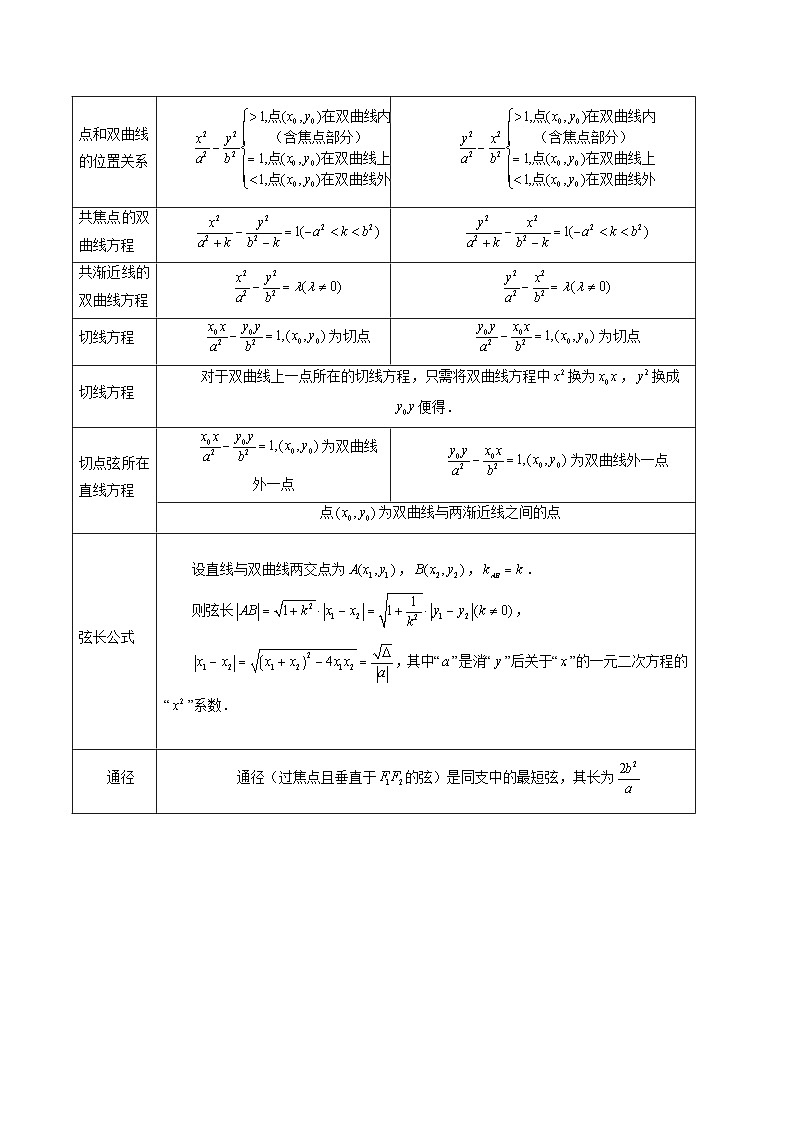 点和双曲线
的位置关系
x²/a² − y²/b² { >1,点(x₀,y₀)在双曲线内
(含焦点部分)
=1,点(x₀,y₀)在双曲线上
<1,点(x₀,y₀)在双曲线外
y²/a² − x²/b² { >1,点(x₀,y₀)在双曲线内
(含焦点部分)
=1,点(x₀,y₀)在双曲线上
<1,点(x₀,y₀)在双曲线外
共焦点的双
曲线方程
x²/(a²+k) − y²/(b²−k) = 1(−a² < k < b²)
y²/(a²+k) − x²/(b²−k) = 1(−a² < k < b²)
共渐近线的
双曲线方程
x²/a² − y²/b² = λ(λ ≠ 0)
y²/a² − x²/b² = λ(λ ≠ 0)
切线方程
x₀x/a² − y₀y/b² = 1,(x₀,y₀)为切点
y₀y/a² − x₀x/b² = 1,(x₀,y₀)为切点
切线方程
对于双曲线上一点所在的切线方程,只需将双曲线方程中x²换为x₀x,y²换成
y₀y便得.
切点弦所在
直线方程
x₀x/a² − y₀y/b² = 1,(x₀,y₀)为双曲线
外一点
y₀y/a² − x₀x/b² = 1,(x₀,y₀)为双曲线外一点
点(x₀,y₀)为双曲线与两渐近线之间的点
弦长公式
设直线与双曲线两交点为A(x₁,y₁),B(x₂,y₂),k_AB = k.
则弦长|AB| = √(1+k²)·|x₁−x₂| = √(1+1/k²)·|y₁−y₂|(k≠0),
|x₁−x₂| = √((x₁+x₂)²−4x₁x₂) = √Δ/|a|,其中“a”是消“y”后关于“x”的一元二次方程的
“x²”系数.
通径
通径(过焦点且垂直于F₁F₂的弦)是同支中的最短弦,其长为2b²/a